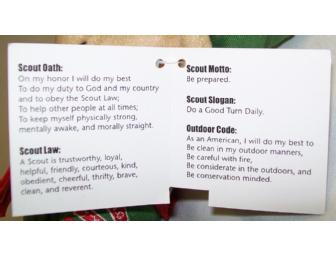 Scout Oath:
On my honor I will do my best
To do my duty to God and my country
and to obey the Scout Law;
To help other people at all times;
To keep myself physically strong,
mentally awake, and morally straight.
Scout Law:
A Scout is trustworthy, loyal,
helpful, friendly, courteous, kind,
obedient, cheerful, thrifty, brave,
clean, and reverent.
Scout Motto:
Be prepared.
Scout Slogan:
Do a Good Turn Daily.
Outdoor Code:
As an American, I will do my best to
Be clean in my outdoor manners,
Be careful with fire,
Be considerate in the outdoors, and
Be conservation minded.